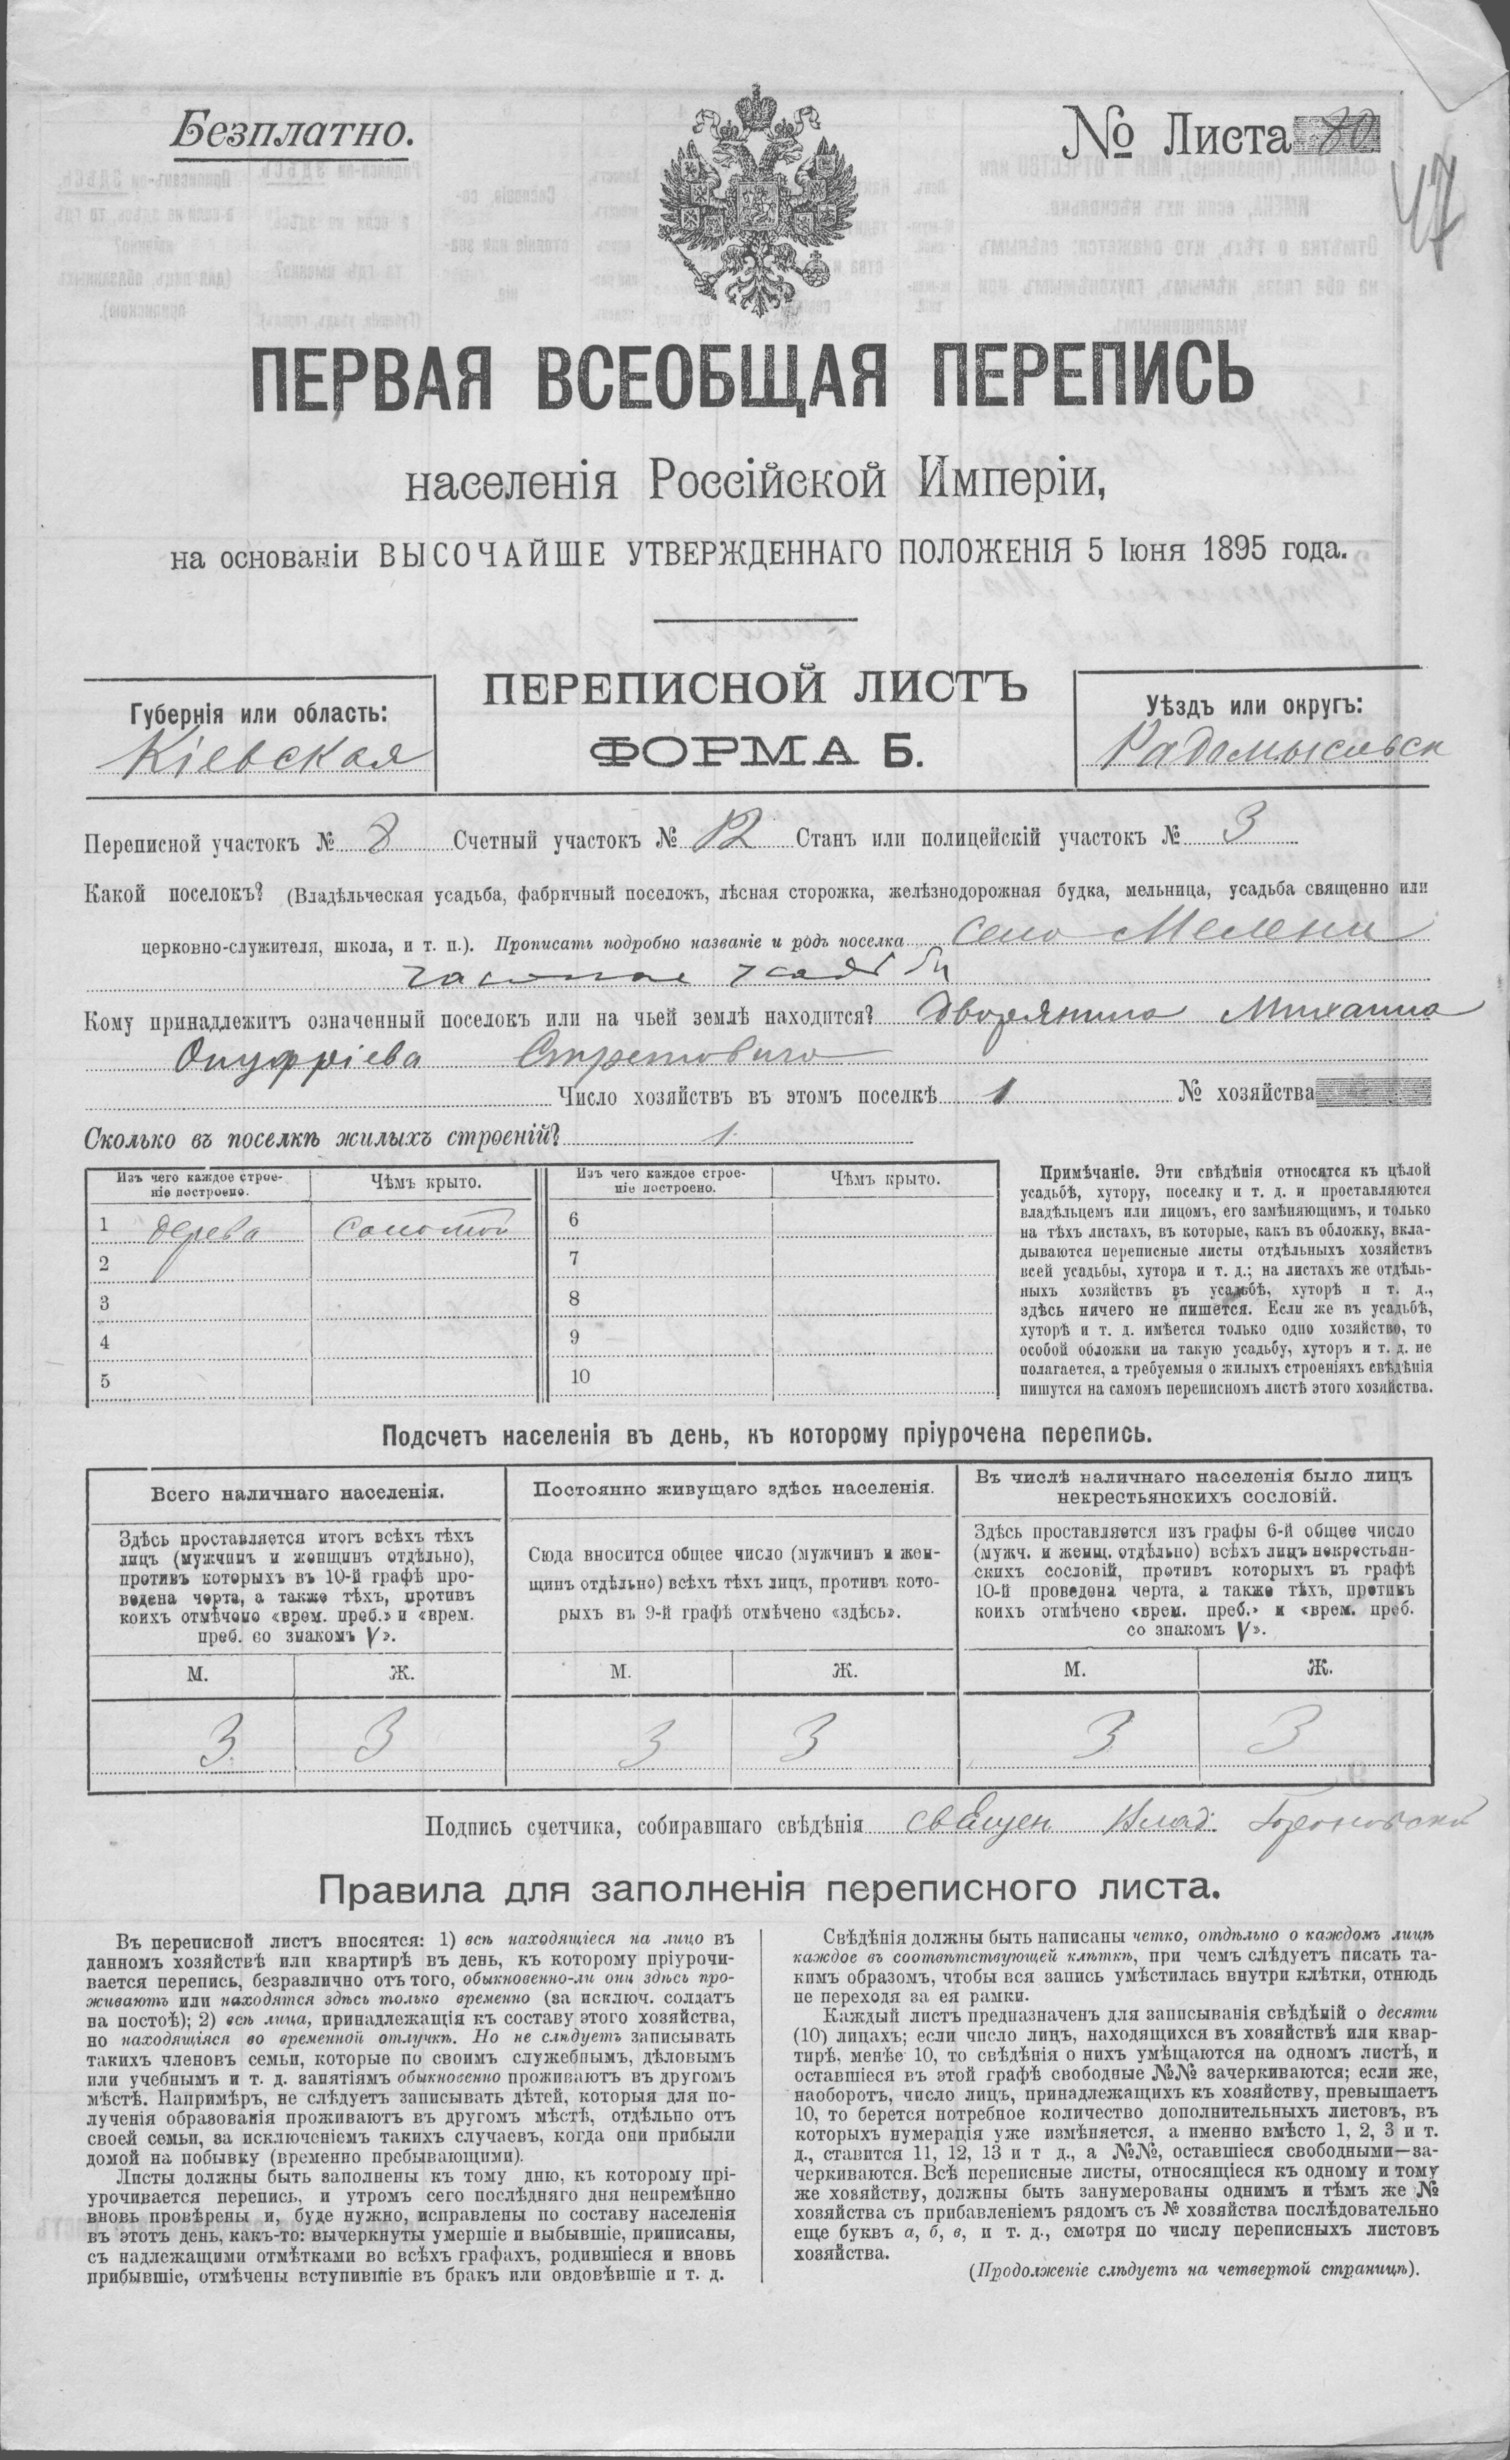 Безплатно.
№ Листа 80
47
ПЕРВАЯ ВСЕОБЩАЯ ПЕРЕПИСЬ
населенія Россійской Имперіи,
на основаніи ВЫСОЧАЙШЕ УТВЕРЖДЕННАГО ПОЛОЖЕНІЯ 5 Іюня 1895 года.
Губернія или область:
Кіевская
ПЕРЕПИСНОЙ ЛИСТЪ
ФОРМА Б.
Уѣздъ или округъ:
Радомысльск
Переписной участокъ № 8 Счетный участокъ № 12 Станъ или полицейскій участокъ № 3
Какой поселокъ? (Владѣльческая усадьба, фабричный поселокъ, лѣсная сторожка, желѣзнодорожная будка, мельница, усадьба священно или
церковно-служителя, школа, и т. п.). Прописать подробно названіе и родъ поселка село Мелени
Кому принадлежитъ означенный поселокъ или на чьей землѣ находится? Дворянина Михаила
Онуфріева Стретовича
Число хозяйствъ въ этомъ поселкѣ 1 № хозяйства
Сколько въ поселкѣ жилыхъ строеній? 1
Изъ чего каждое строе-
ніе построено.
Чѣмъ крыто.
Изъ чего каждое строе-
ніе построено.
Чѣмъ крыто.
1 дерева соломой 6
2 7
3 8
4 9
5 10
Примѣчаніе. Эти свѣдѣнія относятся къ цѣлой
усадьбѣ, хутору, поселку и т. д. и проставляются
владѣльцемъ или лицомъ, его замѣняющимъ, и только
на тѣхъ листахъ, въ которые, какъ въ обложку, вкла-
дываются переписные листы отдѣльныхъ хозяйствъ
всей усадьбы, хутора и т. д.; на листахъ же отдѣль-
ныхъ хозяйствъ въ усадьбѣ, хуторѣ и т. д.,
здѣсь ничего не пишется. Если же въ усадьбѣ,
хуторѣ и т. д. имѣется только одно хозяйство, то
особой обложки на такую усадьбу, хуторъ и т. д. не
полагается, а требуемыя о жилыхъ строеніяхъ свѣдѣнія
пишутся на самомъ переписномъ листѣ этого хозяйства.
Подсчетъ населенія въ день, къ которому пріурочена перепись.
Всего наличнаго населенія.
Здѣсь проставляется итогъ всѣхъ тѣхъ
лицъ (мужчинъ и женщинъ отдѣльно),
противъ которыхъ въ 10-й графѣ про-
ведена черта, а также тѣхъ, противъ
коихъ отмѣчено «врем. преб.» и «врем.
преб. со знакомъ V».
М. Ж.
3 3
Постоянно живущаго здѣсь населенія.
Сюда вносится общее число (мужчинъ и жен-
щинъ отдѣльно) всѣхъ тѣхъ лицъ, противъ кото-
рыхъ въ 9-й графѣ отмѣчено «здѣсь».
М. Ж.
3 3
Въ числѣ наличнаго населенія было лицъ
некрестьянскихъ сословій.
Здѣсь проставляется изъ графы 6-й общее число
(мужч. и женщ. отдѣльно) всѣхъ лицъ некрестьян-
скихъ сословій, противъ которыхъ въ графѣ
10-й проведена черта, а также тѣхъ, противъ
коихъ отмѣчено «врем. преб.» и «врем. преб.
со знакомъ V».
М. Ж.
3 3
Подпись счетчика, собиравшаго свѣдѣнія священ Влад.
Правила для заполненія переписного листа.
Въ переписной листъ вносятся: 1) всѣ находящіеся на лицо въ
данномъ хозяйствѣ или квартирѣ въ день, къ которому пріурочи-
вается перепись, безразлично отъ того, обыкновенно-ли они здѣсь про-
живаютъ или находятся здѣсь только временно (за исключ. солдатъ
на постоѣ); 2) всѣ лица, принадлежащія къ составу этого хозяйства,
но находящіяся во временной отлучкѣ. Но не слѣдуетъ записывать
такихъ членовъ семьи, которые по своимъ служебнымъ, дѣловымъ
или учебнымъ и т. д. занятіямъ обыкновенно проживаютъ въ другомъ
мѣстѣ. Напримѣръ, не слѣдуетъ записывать дѣтей, которыя для по-
лученія образованія проживаютъ въ другомъ мѣстѣ, отдѣльно отъ
своей семьи, за исключеніемъ такихъ случаевъ, когда они прибыли
домой на побывку (временно пребывающими).
Листы должны быть заполнены къ тому дню, къ которому прі-
урочивается перепись, и утромъ сего послѣдняго дня непремѣнно
вновь провѣрены и, буде нужно, исправлены по составу населенія
въ этотъ день, какъ-то: вычеркнуты умершіе и выбывшіе, приписаны,
съ надлежащими отмѣтками во всѣхъ графахъ, родившіеся и вновь
прибывшіе, отмѣчены вступившіе въ бракъ или овдовѣвшіе и т. д.
Свѣдѣнія должны быть написаны четко, отдѣльно о каждомъ лицѣ
каждое въ соотвѣтствующей клѣткѣ, при чемъ слѣдуетъ писать та-
кимъ образомъ, чтобы вся запись умѣстилась внутри клѣтки, отнюдь
не переходя за ея рамки.
Каждый листъ предназначенъ для записыванія свѣдѣній о десяти
(10) лицахъ; если число лицъ, находящихся въ хозяйствѣ или квар-
тирѣ, менѣе 10, то свѣдѣнія о нихъ умѣщаются на одномъ листѣ, и
оставшіеся въ этой графѣ свободные №№ зачеркиваются; если же,
наоборотъ, число лицъ, принадлежащихъ къ хозяйству, превышаетъ
10, то берется потребное количество дополнительныхъ листовъ, въ
которыхъ нумерація уже измѣняется, а именно вмѣсто 1, 2, 3 и т.
д., ставится 11, 12, 13 и т д., а №№, оставшіеся свободными—за-
черкиваются. Всѣ переписные листы, относящіеся къ одному и тому
же хозяйству, должны быть занумерованы однимъ и тѣмъ же №
хозяйства съ прибавленіемъ рядомъ съ № хозяйства послѣдовательно
еще буквъ а, б, в, и т. д., смотря по числу переписныхъ листовъ
хозяйства.
(Продолженіе слѣдуетъ на четвертой страницѣ).